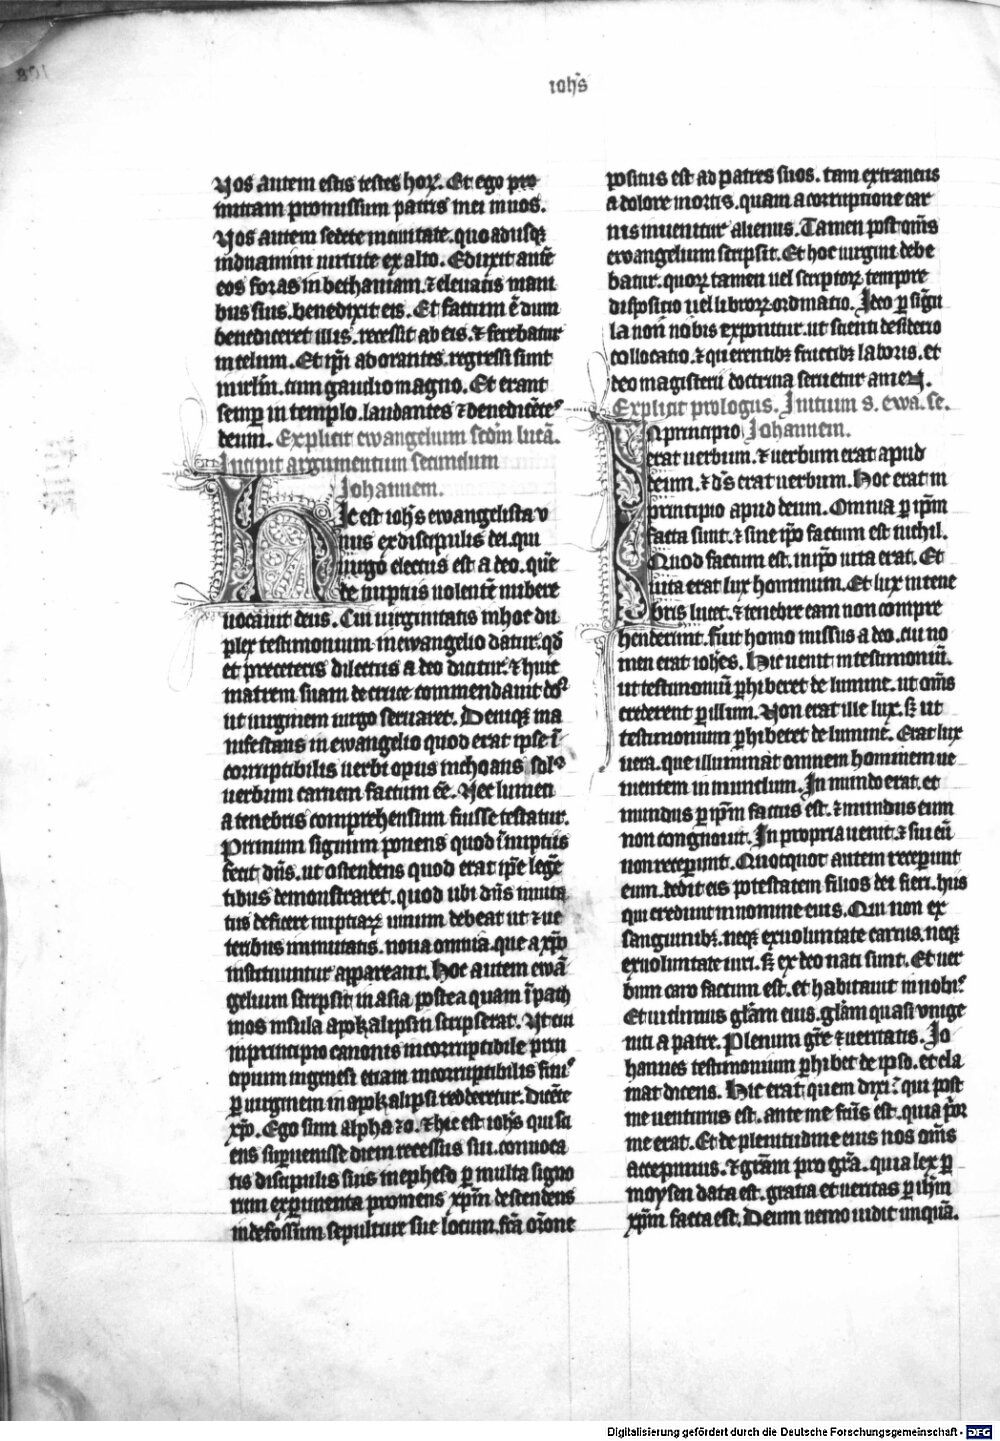 ioh̅s
Vos autem estis testes horꝝ. Et ego pro
mittam promissum patris mei in uos.
Vos autem sedete in ciuitate. quo adusqꝫ
induamini uirtute ex alto. Eduxit aute̅
eos foras in bethaniam. ⁊ eleuatis mani
bus suis. benedixit eis. Et factum e̅ dum
benediceret illis. recessit ab eis. ⁊ ferebatur
in celum. Et ip̅i adorantes. regressi sunt
in irl̅m. cum gaudio magno. Et erant
semꝑ in templo. laudantes ⁊ benedice̅tes
deum. Explicit ewangelium scd̅m luca̅.
Incipit argumentum secundum
Johannem.
Hic est ioh̅s ewangelista v
nus ex discipulis dei. qui
uirgo electus est a deo. que̅
de nuptiis uolente̅ nubere
uocauit deus. Cui uirginitatis in hoc du
plex testimonium in ewangelio datur. qd̅
et pre ceteris dilectus a deo dicitur. ⁊ huic
matrem suam de cruce commendauit do̅s
ut uirginem uirgo seruaret. Deniqꝫ ma
nifestans in ewangelio quod erat ipse i̅
corruptibilis uerbi opus inchoans sol9
uerbum carnem factum e̅e. Nec lumen
a tenebris comprehensum fuisse testatur.
Primum signum ponens quod i̅ nuptiis
fecit dn̅s. ut ostendens quod erat ip̅e lege̅
tibus demonstraret. quod ubi dn̅s inuita
tus deficere nuptiarꝝ uinum debeat ut ⁊ ue
teribus inmutatis. noua omnia. que a xp̅o
instituuntur appareant. Hoc autem ewa̅
gelium scripsit in asia postea quam i̅ path
mos insula apokalipsin scripserat. Vt cui
in principio canonis incorruptibile prin
cipium in genesi etiam incorruptibilis finis
ꝑ uirginem in apokalipsi redderetur. Dice̅te
xp̅o. Ego sum alpha ⁊ o. ⁊ hic est ioh̅s qui sci
ens suꝑuenisse diem recessus sui. conuoca
tis discipulis suis in epheso ꝑ multa signo
rum exꝑimenta promens xp̅m descendens
in defossu̅m sepulture sue locum. fc̅a or̅one
positus est ad patres suos. tam extraneus
a dolore mortis. quam a corruptione car
nis inuenitur alienus. Tamen post om̅s
ewangelium scripsit. Et hoc uirgini debe
batur. quorꝝ tamen uel scriptorꝝ tempore
dispositio uel librorꝝ ordinatio. Ideo ꝑ sigu̅
la non nobis exponitur. ut scienti desiderio
collocatio. ⁊ querentibꝫ fructibꝫ laboris. et
deo magisterii doctrina seruetur amen.
Explicit prologus. Initium s. ewa. se.
In principio Johannem.
erat uerbum. ⁊ uerbum erat apud
deum. ⁊ ds̅ erat uerbum. Hoc erat in
principio apud deum. Omnia ꝑ ip̅m
facta sunt. ⁊ sine ip̅o factum est nichil.
Quod factum est. in ip̅o uita erat. Et
uita erat lux hominum. Et lux in tene
bris lucet. ⁊ tenebre eam non compre
henderunt. Fuit homo missus a deo. cui no
men erat ioh̅es. Hic uenit in testimoniu̅.
ut testimoniu̅ ꝑhiberet de lumine. ut om̅s
crederent ꝑ illum. Non erat ille lux. sꝫ ut
testimonium ꝑhiberet de lumine. Erat lux
uera. que illuminat omnem hominem ue
nientem in mundum. In mundo erat. et
mundus ꝑ ip̅m factus est. ⁊ mundus eum
non congnouit. In propria uenit. ⁊ sui eu̅
non receperunt. Quotquot autem receꝑunt
eum. dedit eis potestatem filios dei fieri. hiis
qui credunt in nomine eius. Qui non ex
sanguinibꝫ. neqꝫ ex uoluntate carnis. neqꝫ
ex uoluntate uiri. sꝫ ex deo nati sunt. Et uer
bum caro factum est. et habitauit in nobis
Et uidimus gl̅am eius. gl̅am quasi vnige
niti a patre. Plenum gr̅e ⁊ ueritatis. Jo
hannes testimonium ꝑhibet de ipso. et cla
mat dicens. Hic erat quem dixi. qui post
me uenturus est. ante me fc̅us est. quia p̅or
me erat. Et de plenitudine eius nos om̅s
accepimus. ⁊ gr̅am pro gr̅a. quia lex ꝑ
moysen data est. gratia et ueritas ꝑ ih̅m
xp̅m facta est. Deum nemo uidit unqua̅.
Digitalisierung gefördert durch die Deutsche Forschungsgemeinschaft - DFG